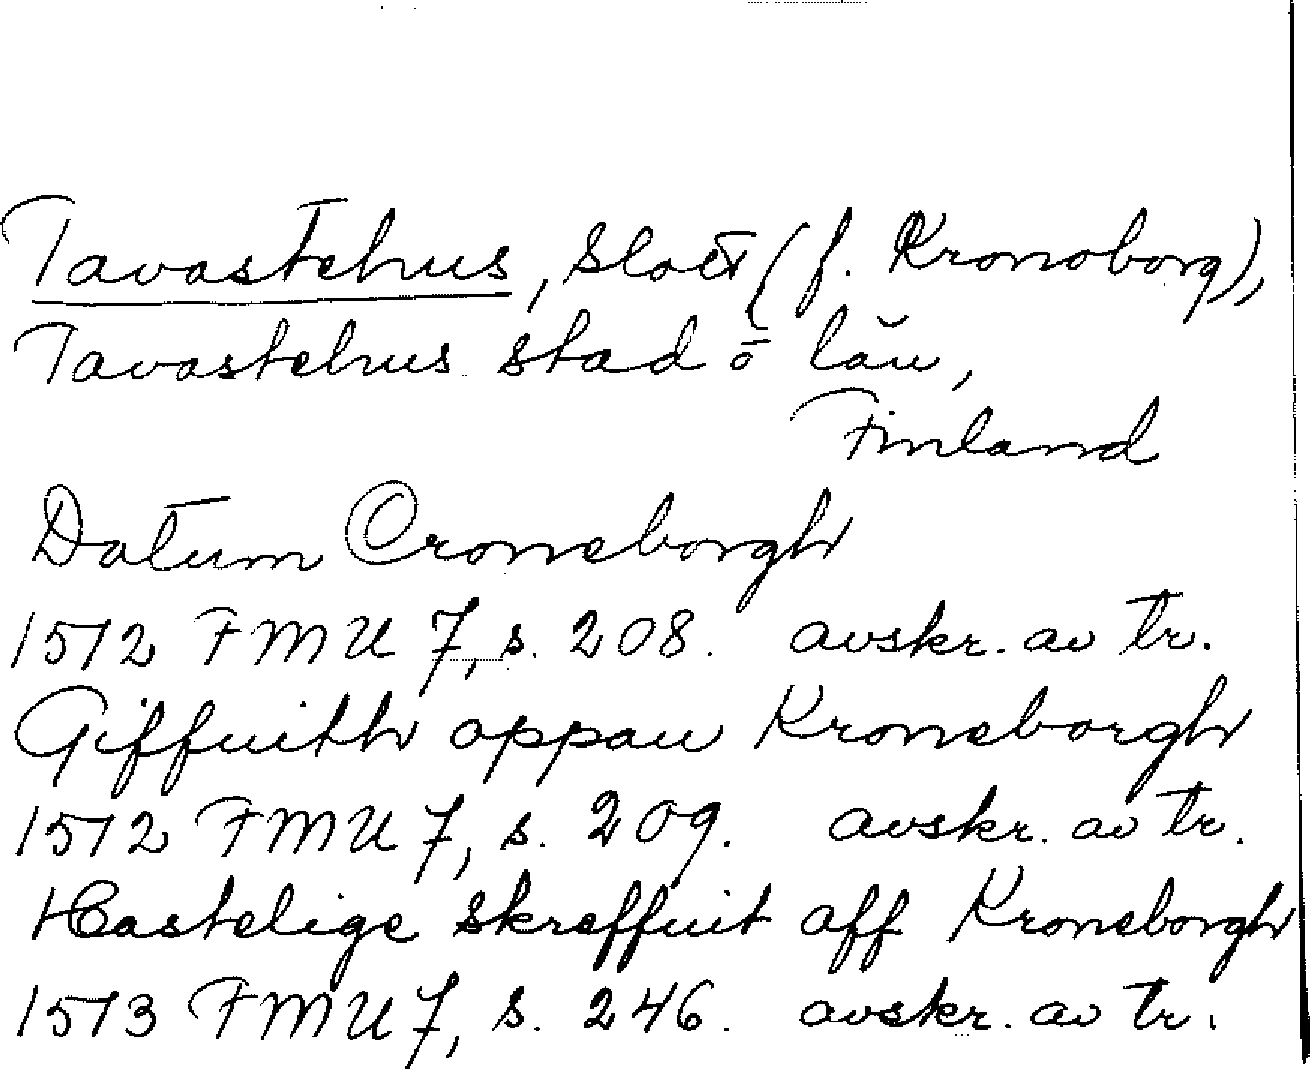 Tavastehus, slott (f. Kronoborg),
Tavastehus stad o län,
Finland
Datum Croneborgh
1512 FMU 7, s. 208. avskr. av tr.
Giffuith oppau Kroneborgh
1512 FMU 7, s. 209. avskr. av tr.
Hastelige skreffuit aff Kroneborgh
1513 FMU 7, s. 246. avskr. av tr.